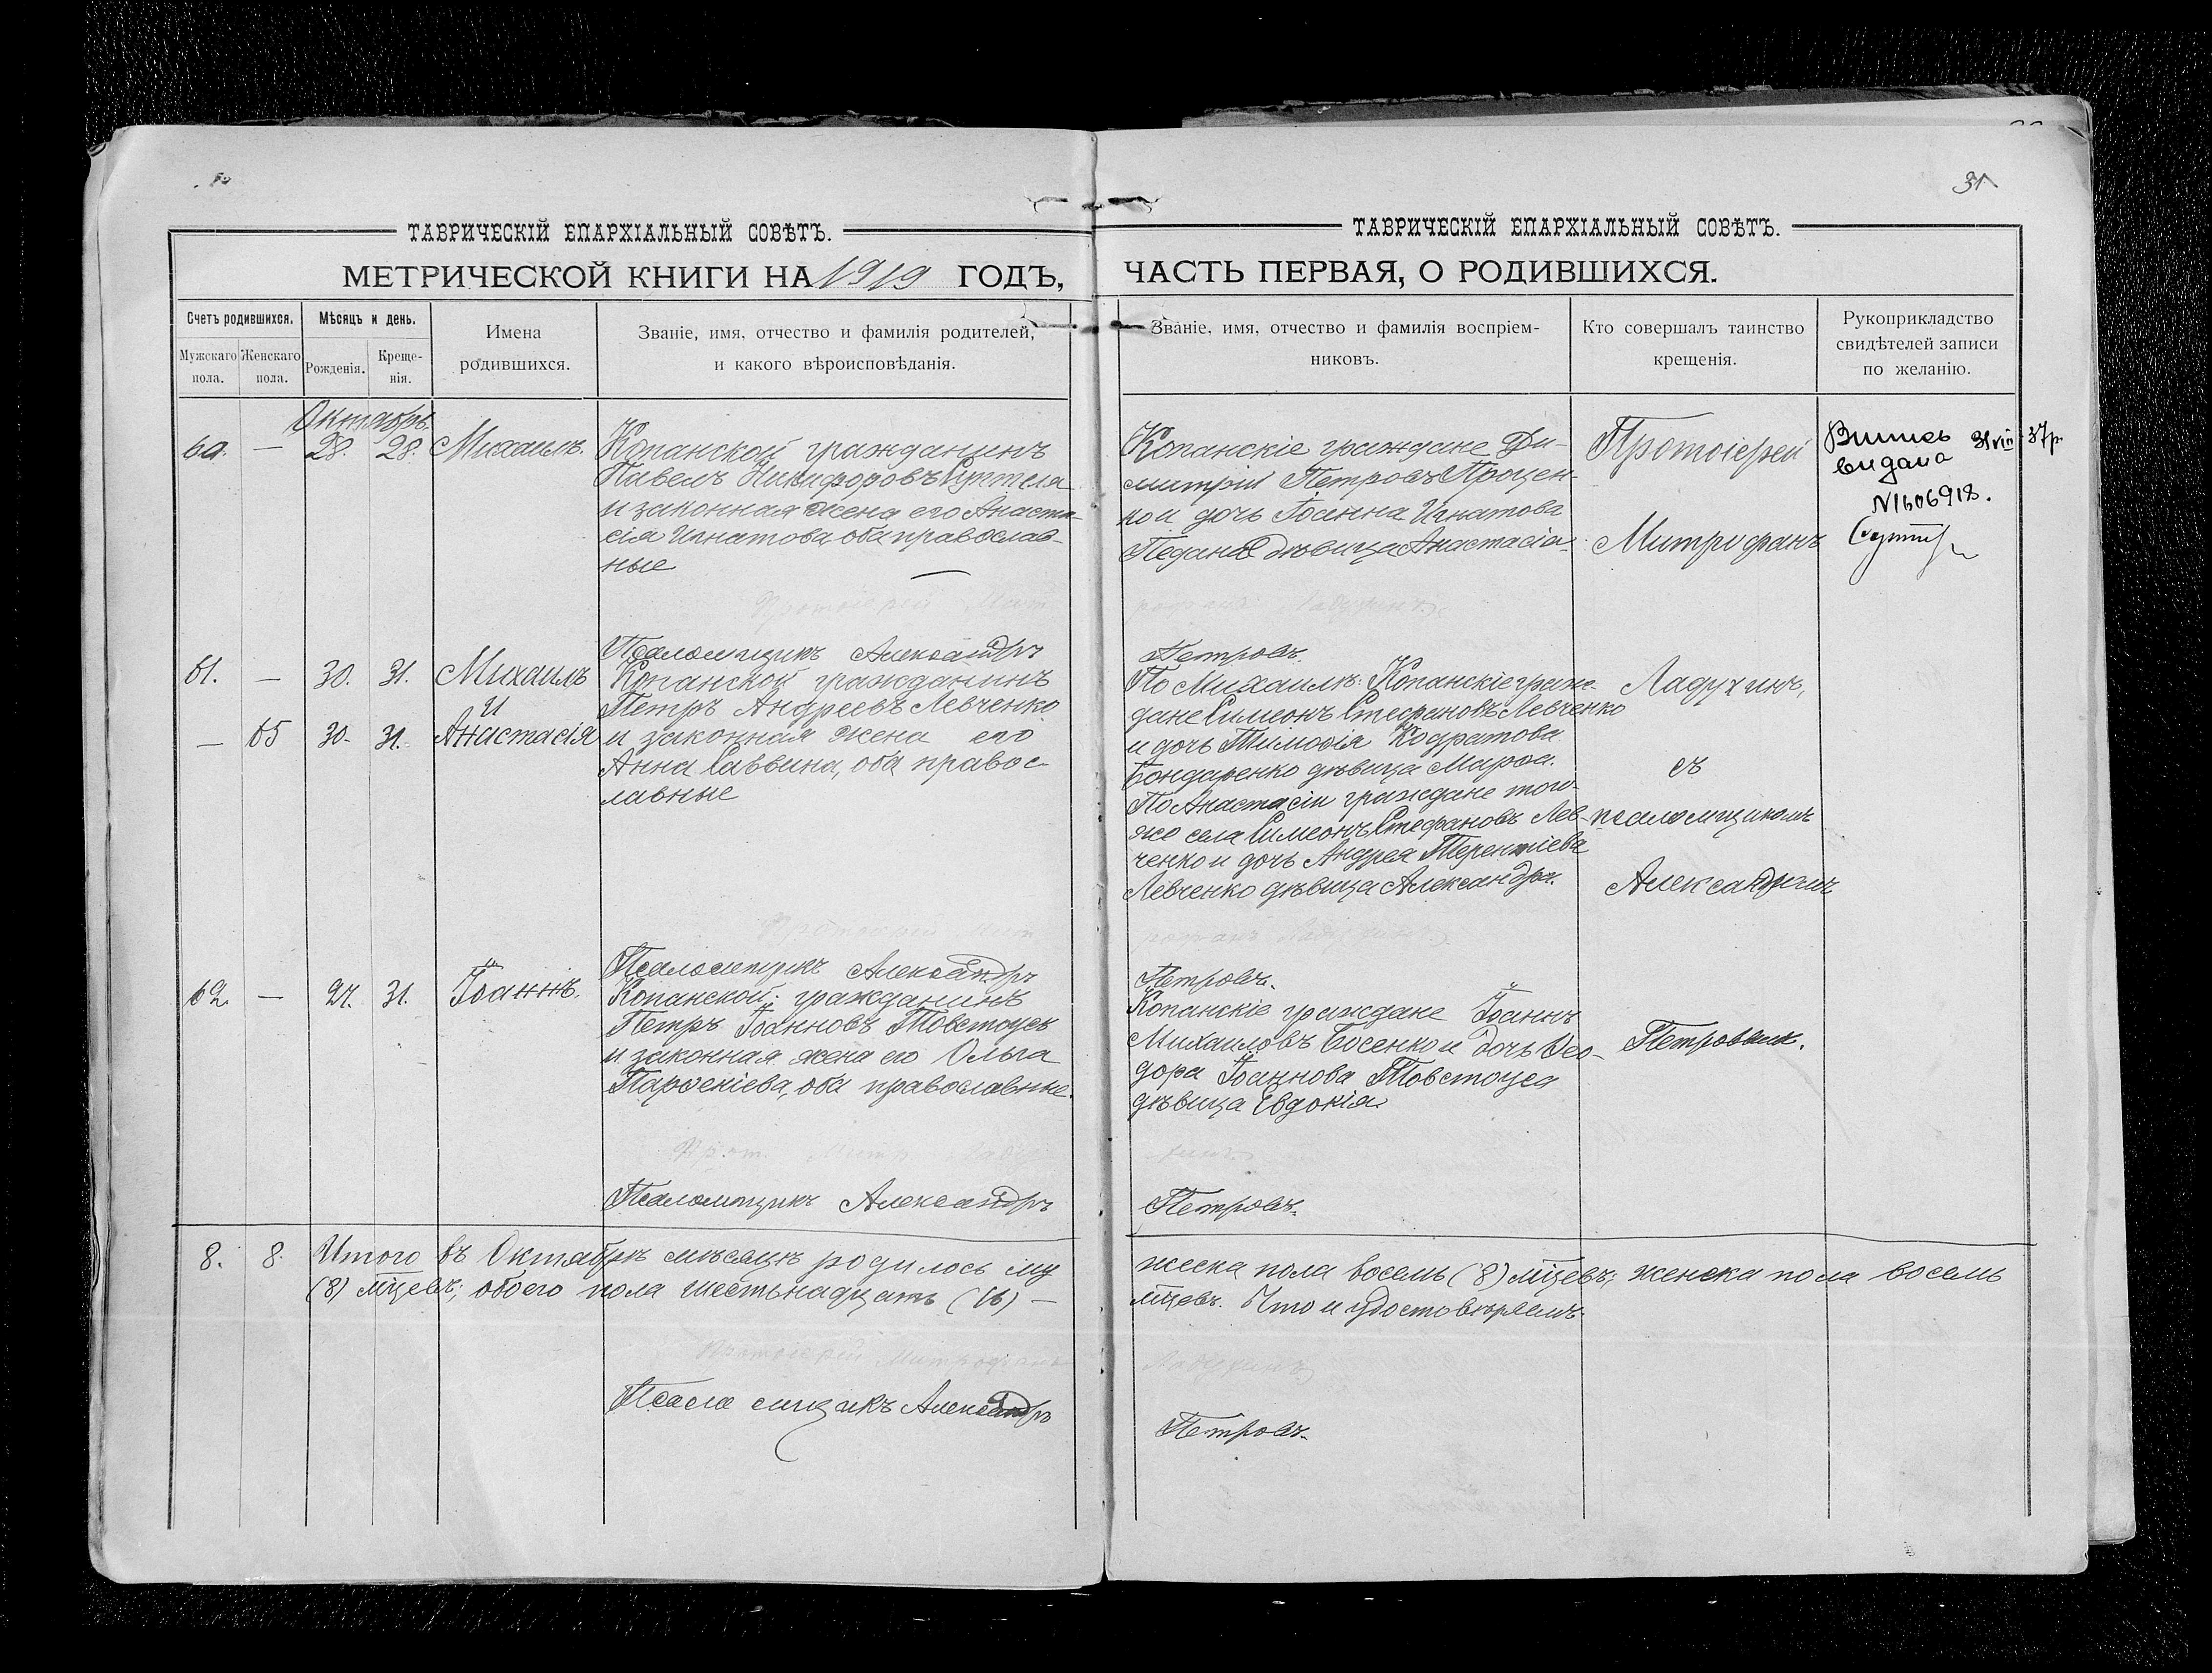 31
ТАВРИЧЕСКІЙ ЕПАРХІАЛЬНЫЙ СОВѢТЪ.
МЕТРИЧЕСКОЙ КНИГИ НА 1919 ГОДЪ,
Счетъ родившихся.
Мужскаго пола.
Женскаго пола.
Мѣсяцъ и день.
Рожденія.
Креще-
нія.
Имена
родившихся.
Званіе, имя, отчество и фамилія родителей,
и какого вѣроисповѣданія.
Октябрь.
60. — 28. 28. Михаилъ.
Копанской гражданинъ
Павелъ Никифоровъ
и законная жена его Анаста-
сія Игнатова оба православ-
ные
Протоіерей Мит
Псаломщикъ Александръ
61. — 30. 31. Михаилъ
и
— 65 30. 31. Анастасія
Копанской гражданинъ
Петръ Андреевъ Левченко
и законная жена его
Анна Саввина, оба правос-
лавные
Протоіерей Мит
Псаломщикъ Александръ
62. — 27. 31. Іоаннъ.
Копанской гражданинъ
Петръ Іоанновъ Товстоусъ
и законная жена его Ольга
Парѳеніева, оба православные.
Прот. Митр. Ладу
Псаломщикъ Александръ
8. 8. Итого въ Октябрѣ мѣсяцѣ родилось му
(8) мцевъ; обоего пола шестьнадцать (16) —
Протоіерей Митрофанъ
Псаломщикъ Александръ
ТАВРИЧЕСКІЙ ЕПАРХІАЛЬНЫЙ СОВѢТЪ.
ЧАСТЬ ПЕРВАЯ, О РОДИВШИХСЯ.
Званіе, имя, отчество и фамилія воспріем-
никовъ.
Кто совершалъ таинство
крещенія.
Рукоприкладство
свидѣтелей записи
по желанію.
Копанскіе граждане Ди-
митрій Петровъ Процен-
ко и дочь Іоанна Игнатова
дѣвица Анастасія.
рофанъ Ладухинъ.
Петровъ.
По Михаилѣ: Копанскіе граж-
дане Симеонъ Стефановъ Левченко
и дочь Тимоѳія Кодратова
Бондаренко дѣвица Марѳа.
По Анастасіи граждане того-
же села Симеонъ Стефановъ Лев-
ченко и дочь Андрея Терентіева
Левченко дѣвица Александра.
рофанъ Ладухинъ.
Петровъ.
Копанскіе граждане Іоаннъ
Михаиловъ Босенко и дочь Ѳео-
дора Іоаннова Товстоуса
дѣвица Евдокія.
хинъ.
Петровъ.
жеска пола восемь (8) мцевъ; женска пола восемь
мцевъ. Что и удостовѣряемъ.
Ладухинъ
Петровъ.
Протоіерей
Митрофанъ
Ладухинъ,
съ
псаломщикомъ
Александромъ
Петровымъ.
31 VIII 37 р.
видана
N1606918.